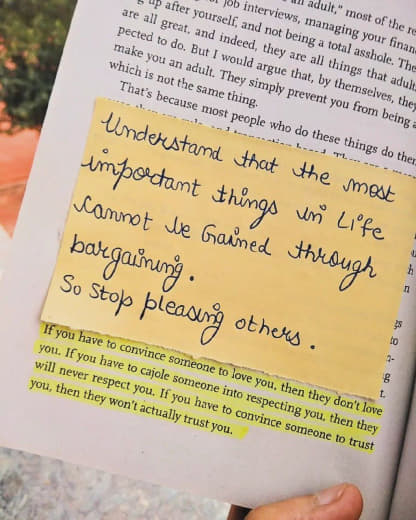 an adult," most of the
job interviews, managing your finan
up after yourself, and not being a total asshole. The
are all great, and indeed, they are all things that adult
pected to do. But I would argue that, by themselves, they
make you an adult. They simply prevent you from being a
which is not the same thing.
That's because most people who do these things do them
Understand that the most
important things in Life
cannot be Gained through
bargaining.
So stop pleasing others.
If you have to convince someone to love you, then they don't love
you. If you have to cajole someone into respecting you, then they
will never respect you. If you have to convince someone to trust
you, then they won't actually trust you.